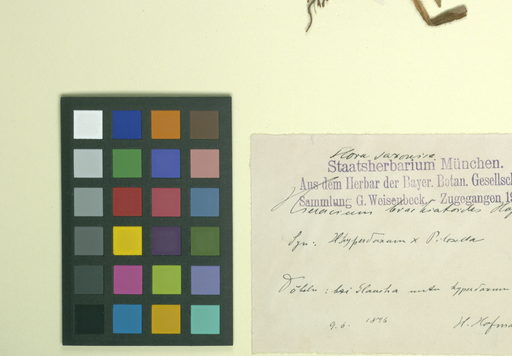 Flora saxonica
Staatsherbarium München.
Aus dem Herbar der Bayer. Botan. Gesellsch
Sammlung G. Weisenbeck, Zugegangen 19
Hieracium brachiatoides
Syn: x Pilosella
Döbeln: bei unter
9. 6. 1896 H. Hofma